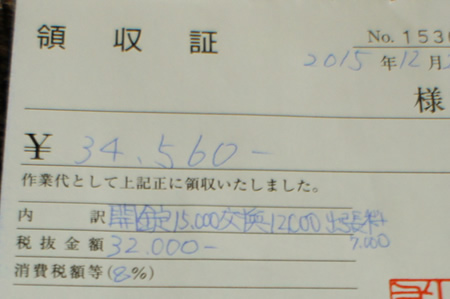 領収証
No. 1530
2015年12月
様
¥ 34,560-
作業代として上記正に領収いたしました。
内訳 開錠15.000交換12000出張料
5.000
税抜金額 32.000-
消費税額等(8%)